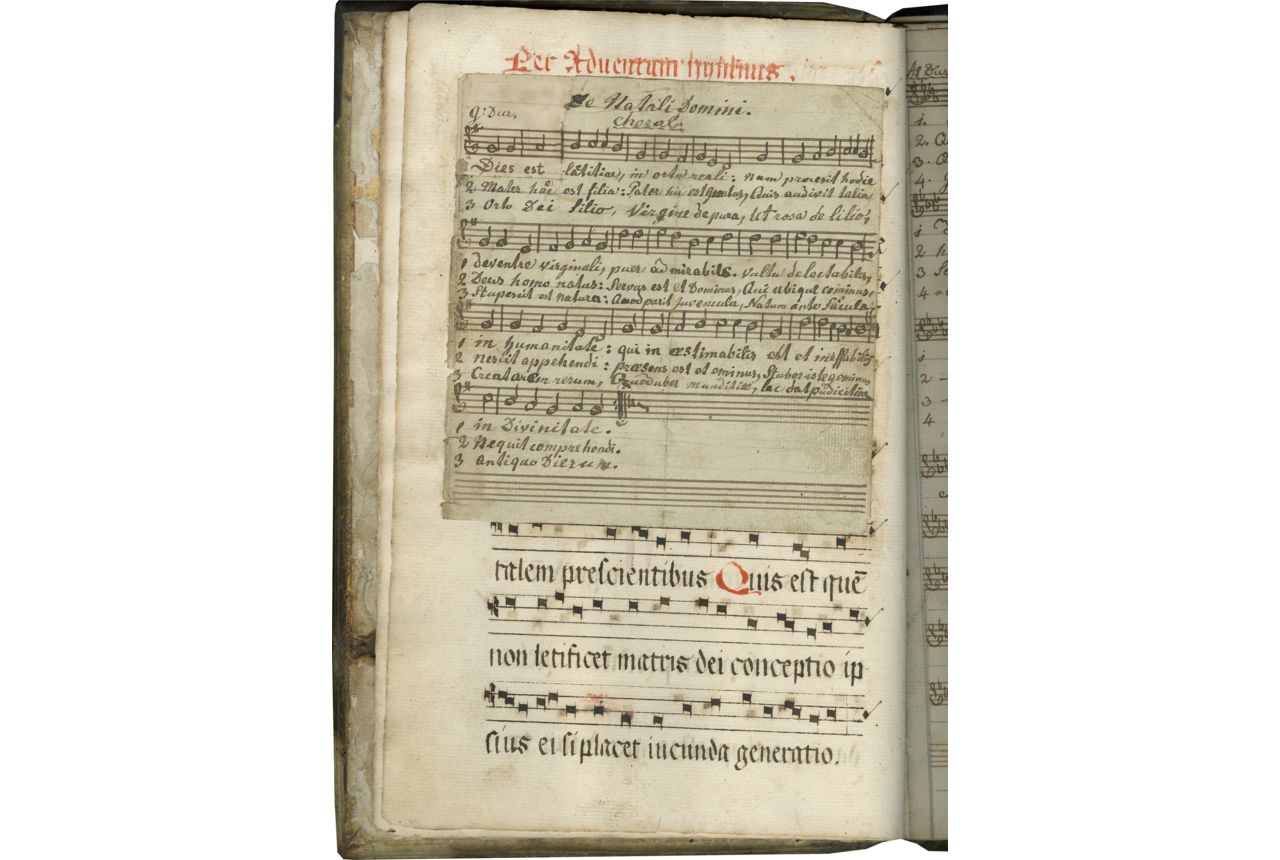 Per Adventum
De Natali Domini.
Choral.
g: Dur.
Dies est lætitiae, in ortu regali: nam processit hodie
2 Mater hæc est filia: Pater hic est Quis audivit talia
3 Orto Dei filio, Virgine de pura, Ut rosa de lilio,
1 de ventre virginali, puer admirabilis. vultu delectabilis,
2 Deus homo natus: Servus est et Dominus, Qui ubique cominus,
3 Stupescit est natura: Quod parit juvencula, Natum ante
1 in humanitate: qui inæstimabilis est et ineffabilis
2 nescit appehendi: præsens est et ominus,
3 Creatarem rerum, Quod uber munditiæ, lac dat
1 in Divinitate.
2 Nequit comprehendi.
3 antiquo Dierum.
talem prescientibus Quis est quē
non letificet matris dei conceptio ip
sius ei si placet iucunda generatio.
A# Dur
1.
2.
3.
4
1
2
3
4
1
2
3
4